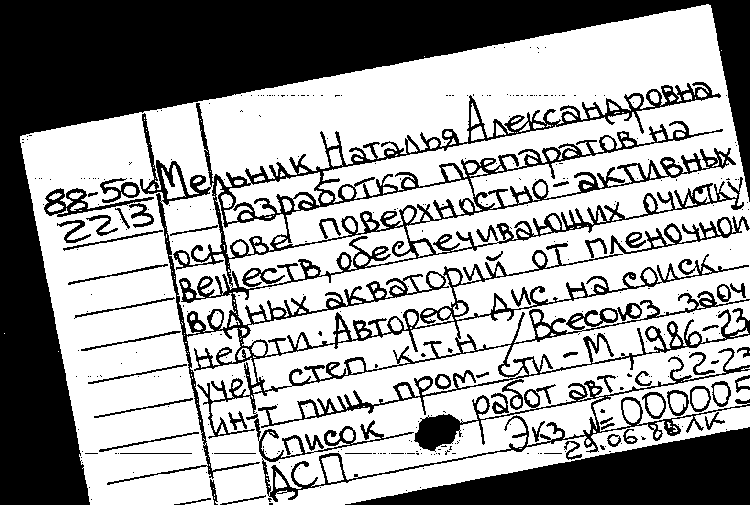 88-50к
2213
Мельник, Наталья Александровна.
Разработка препаратов на
основе поверхностно-активных
веществ, обеспечивающих очистку
водных акваторий от пленочной
нефти: Автореф. дис. на соиск.
учен. степ. к.т.н. / Всесоюз. заоч
ин-т пищ. пром-сти - М., 1986-23
Список работ авт.: с. 22-23
ДСП. Экз. №: 000005
29.06.88 ЛК